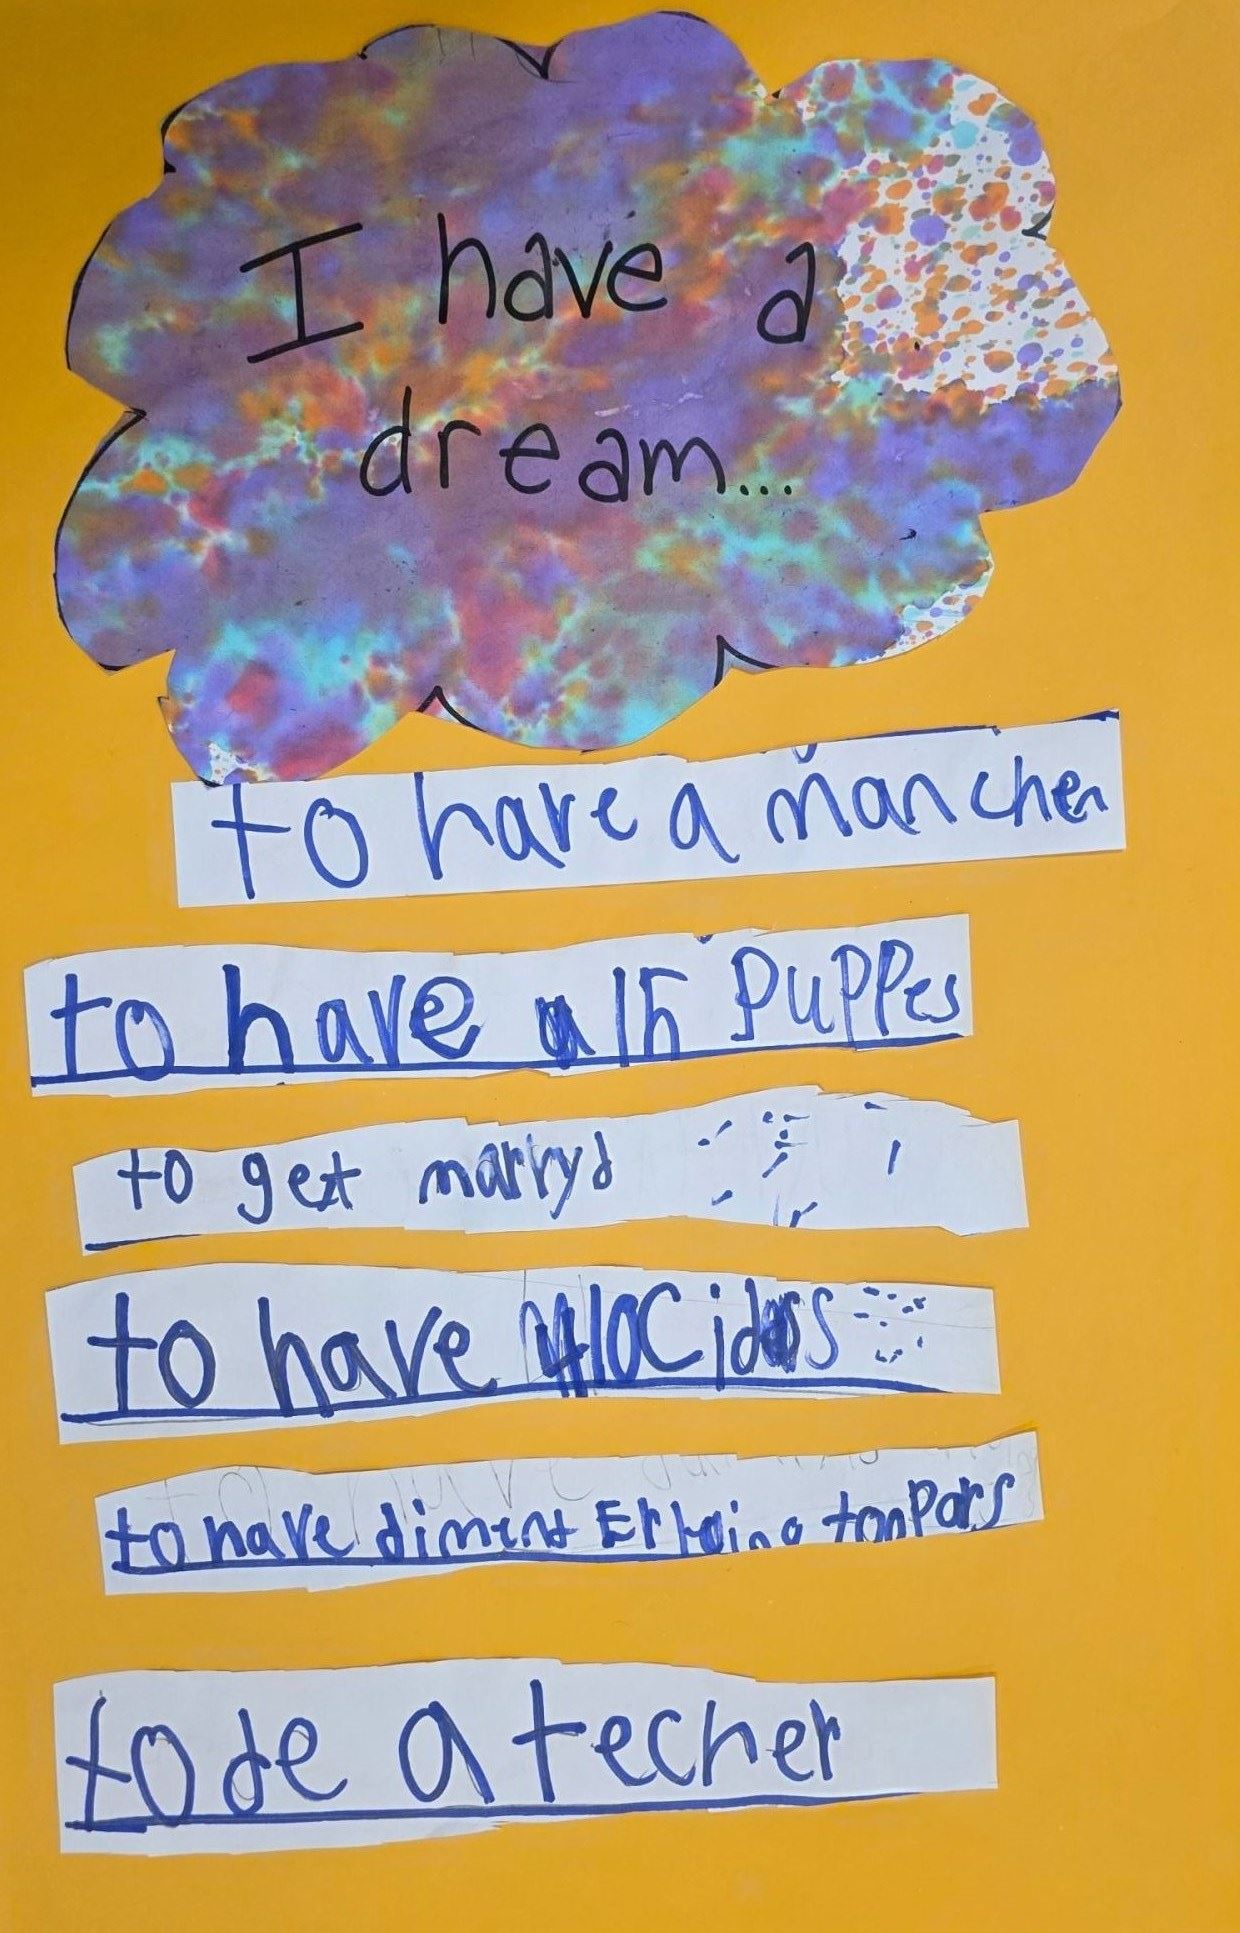 I have a
dream...
to have a manchen
to have a 15 puppes
to get marryd
to have 10 cidss
to have diment Erraing tonpars
to de a techer